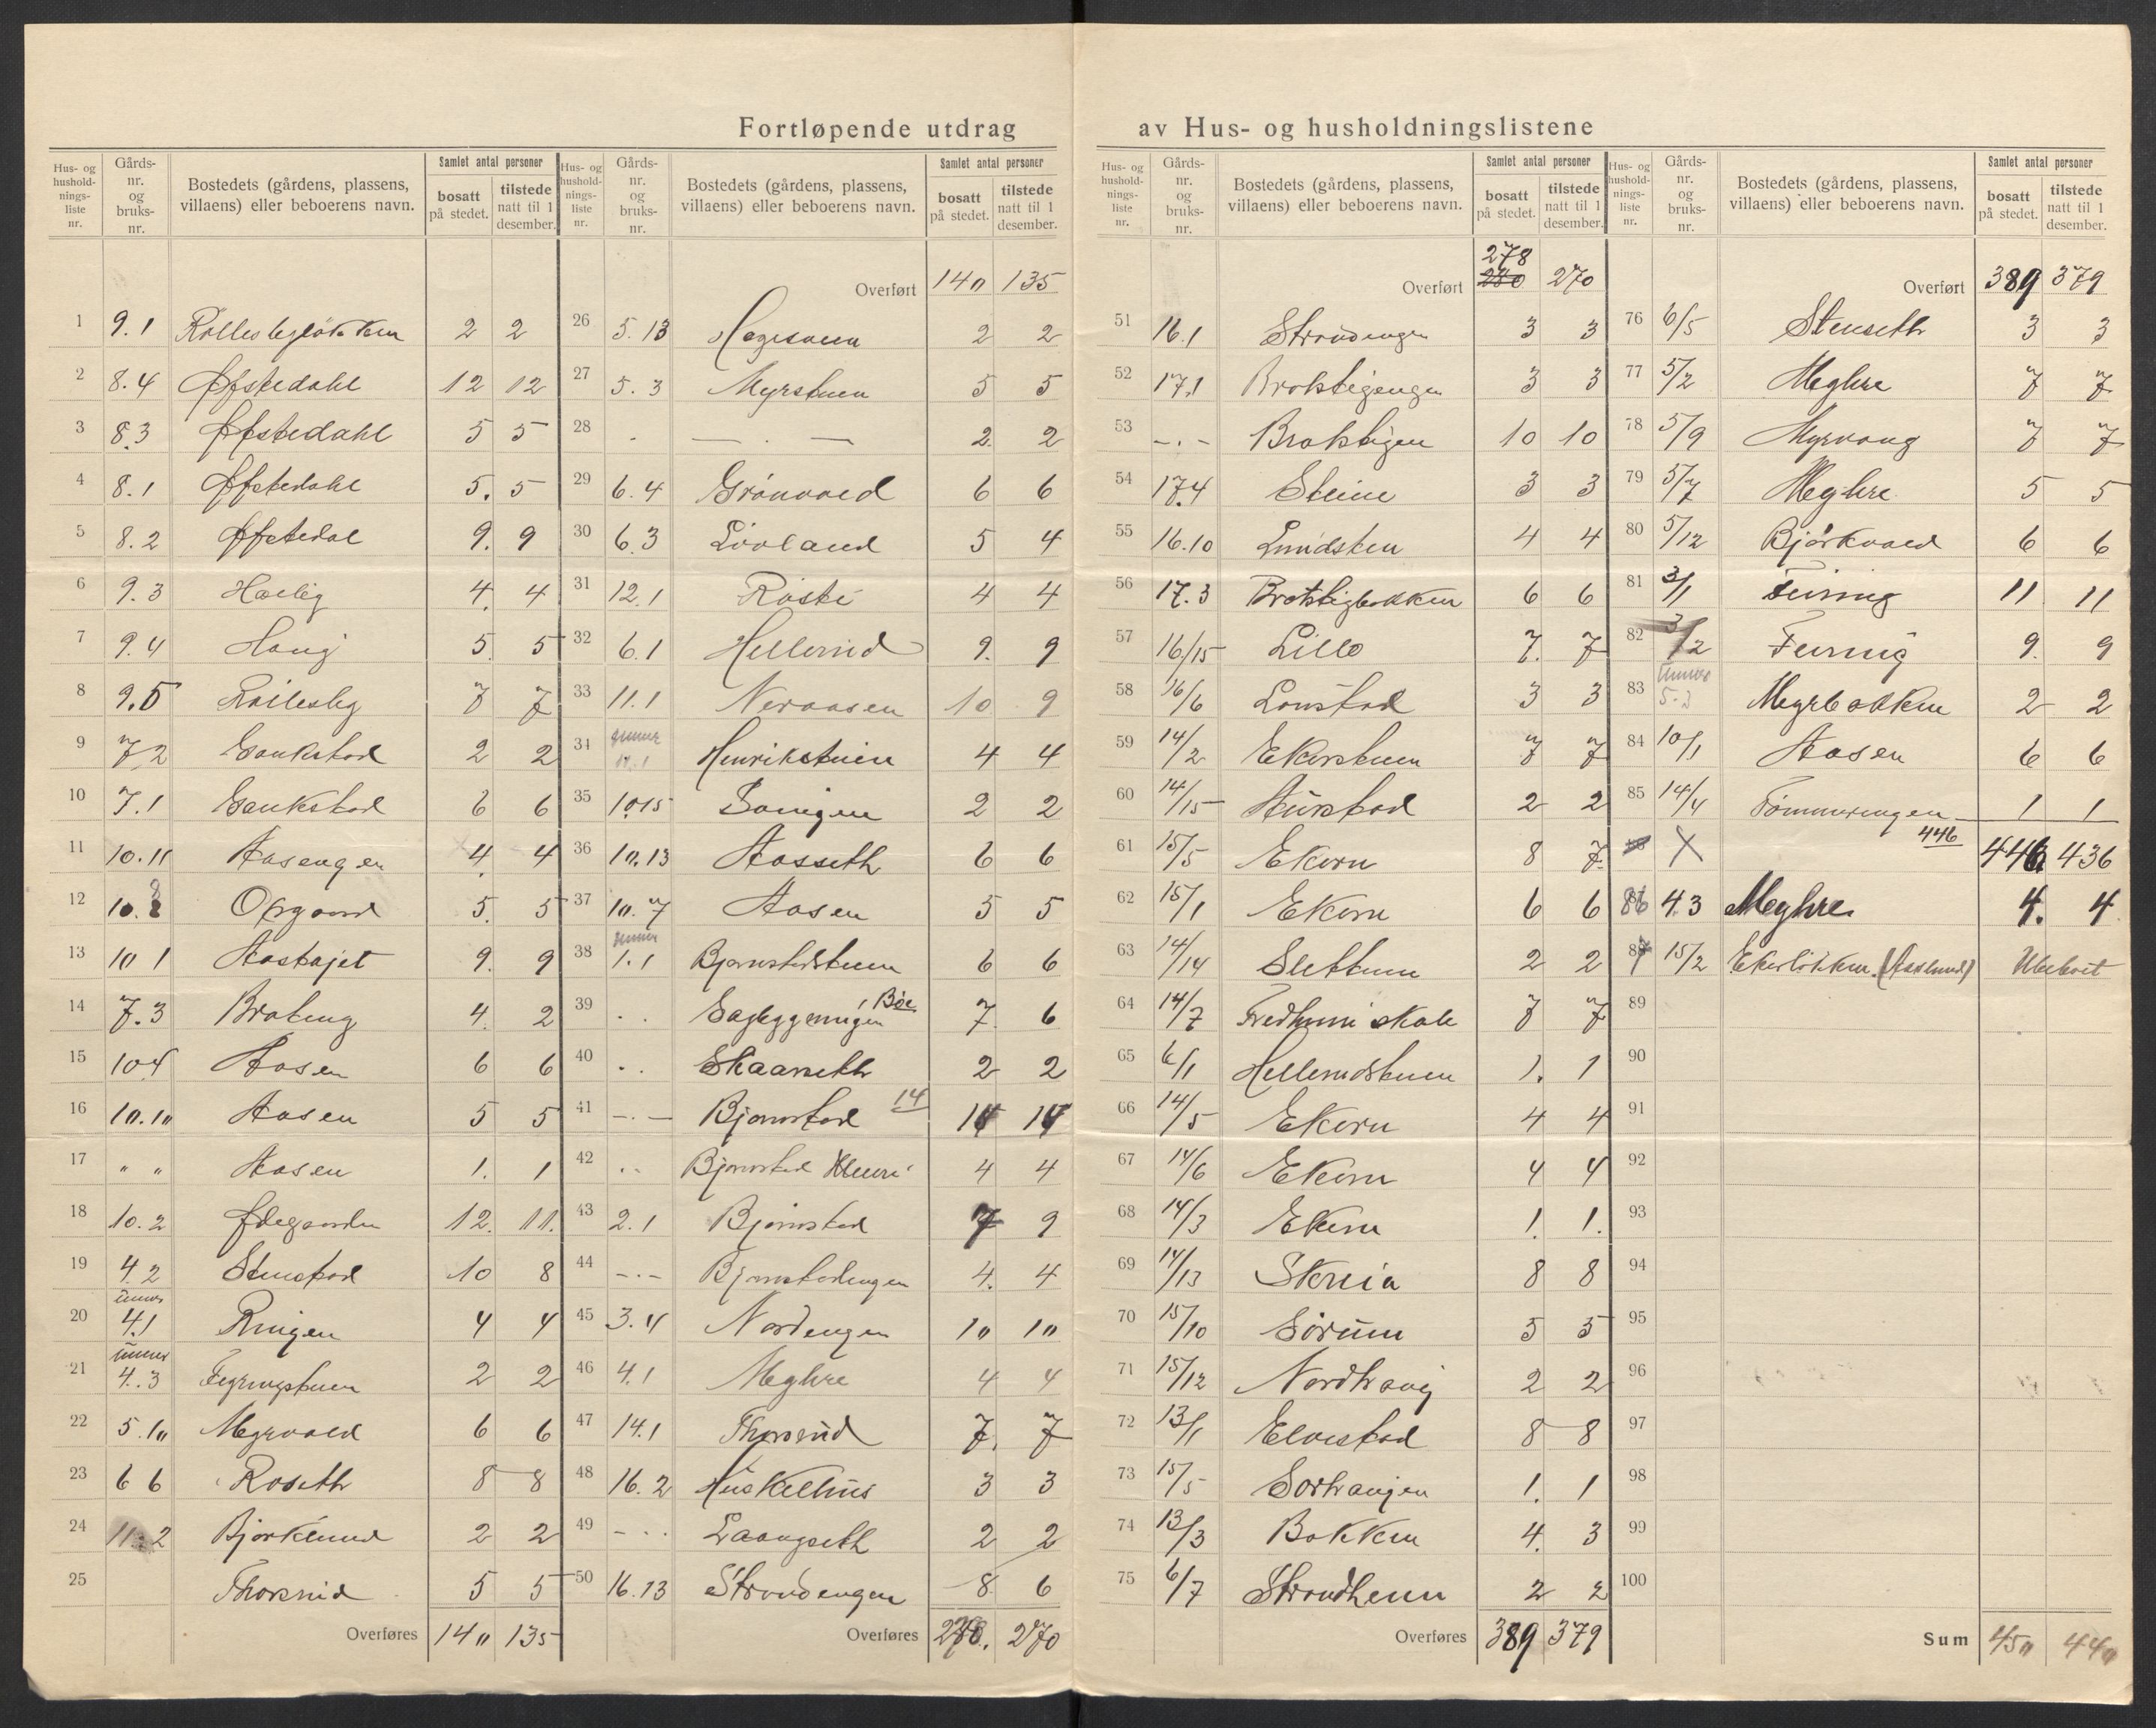 Fortløpende utdrag av Hus- og husholdningslistene
Hus- og husholdnings-liste nr. Gårds-nr. og bruks-nr. Bostedets (gårdens, plassens, villaens) eller beboerens navn. Samlet antal personer bosatt på stedet. tilstede natt til 1 desember.
1 9.1 2 2
2 8.4 Øfstedahl 12 12
3 8.3 Øfstedahl 5 5
4 8.1 Øfstedahl 5. 5
5 8.2 Øfstedal 9. 9
6 9.3 4. 4
7 9.4 Haug 5. 5
8 9.5 Rollesby 7 7
9 7.2 Gaukstad 2 2
10 7.1 Gaukstad 6 6
11 10.11 Aasengen 4. 4
12 10.8 Opgaard 5. 5
13 10 1 9. 9
14 7.3 Brateng 4. 2
15 10 4 Aasen 6 6
16 10.10 Aasen 5 5
17 " " Aasen 1. 1
18 10.2 Ødegaarden 12. 11.
19 4.2 Stenstad 10 8
20 under 4.1 Ringen 4 4
21 under 4.3 2 2
22 5.10 Myrvold 6 6
23 6 6 Roseth 8 8
24 11.2 Bjørklund 2 2
25 Thorsrud 5 5
Overføres 140 135
Hus- og husholdnings-liste nr. Gårds-nr. og bruks-nr. Bostedets (gårdens, plassens, villaens) eller beboerens navn. Samlet antal personer bosatt på stedet. tilstede natt til 1 desember.
Overført 140 135
26 5.13 2 2
27 5.3 Myrstuen 5 5
28 . — . — 2 2
29 6.4 Grønvold 6 6
30 6.3 Løvland 5 4
31 12.1 Røste 4 4
32 6.1 Hellerud 9. 9
33 11.1 Neraasen 10 9
34 Henrikstuen 4 4
35 10.15 2 2
36 10.13 Aasseth 6 6
37 10.7 Aasen 5 5
38 under 1.1 Bjørnstadstuen 6 6
39 . . Sagbygningen, Bøe 7. 6
40 . . Skaarseth 2 2
41 —.— Bjørnstad 14 14 14
42 . . Bjørnstad 4 4
43 2.1 Bjørnstad 9
44 —.— Bjørnstadengen 4. 4
45 3.4 Nordengen 10 10
46 4.1 Meghre 4 4
47 14.1 Thorsrud 7. 7
48 16.2 Huskelhus 3 3
49 — . . Laangseth 2 2
50 16.13 Strandengen 8 6
Overføres 278. 270
Hus- og husholdnings-liste nr. Gårds-nr. og bruks-nr. Bostedets (gårdens, plassens, villaens) eller beboerens navn. Samlet antal personer bosatt på stedet. tilstede natt til 1 desember.
Overført 278 280 270
51 16.1 Strandengen 3 3
52 17.1 Brokstigengen 3 3
53 —.— Brokstigen 10 10
54 17.4 Steine 3 3
55 16.10 4 4
56 17.3 Brokstigbakken 6 6
57 16/15 Lillo 7. 7
58 16/6 Lonstad 3 3
59 14/2 Ekernstuen 7 7
60 14/15 Aurstad 2 2
61 15/5 Ekern 8 7
62 15/1 Ekern 6 6
63 14/14 Slettum 2 2
64 14/7 Fredheim skole 7 7
65 6/1 Hellerudstuen 1. 1
66 14/5 Ekern 4 4
67 14/6 Ekern 4 4
68 14/3 Ekern 1. 1.
69 14/13 Skreia 8 8
70 15/10 Sørum 5 5
71 15/12 Nordhaug 2 2
72 13/1 Elvestad 8 8
73 15/5 Sørhaugen 1. 1
74 13/3 Bakken 4. 3
75 6/7 Strandheim 2 2
Overføres 389 379
Hus- og husholdnings-liste nr. Gårds-nr. og bruks-nr. Bostedets (gårdens, plassens, villaens) eller beboerens navn. Samlet antal personer bosatt på stedet. tilstede natt til 1 desember.
Overført 389 379
76 6/5 Stenseth 3 3
77 5/2 Meghre 7 7
78 5/9 Myrvang 7 7
79 5/7 Meghre 5 5
80 5/12 Bjørkvold 6 6
81 3/1 Feiring 11 11
82 3/2 Feiring 9. 9
83 under 5.2 Myrbakken 2 2
84 10/1 Aasen 6 6
85 14/4 Tømmerengen 1 1
X 446 446 436
86 4.3 Meghre 4. 4
15/2 Ekerløkken. (Aaslund) Ubeboet
89
90
91
92
93
94
95
96
97
98
99
100
Sum 450 440